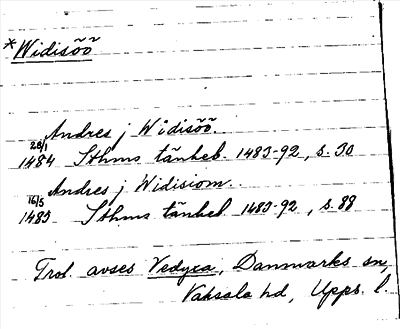 *Widisöö
Andres j Widisöö.
28/1
1484 Sthms tänkeb. 1483-92, s. 30
Andres j Widisiom.
16/5
1485 Sthms tänkeb 1483-92, s. 88
Trol. avses Vedyxa, Danmarks sn,
Vaksala hd, Upps. l.